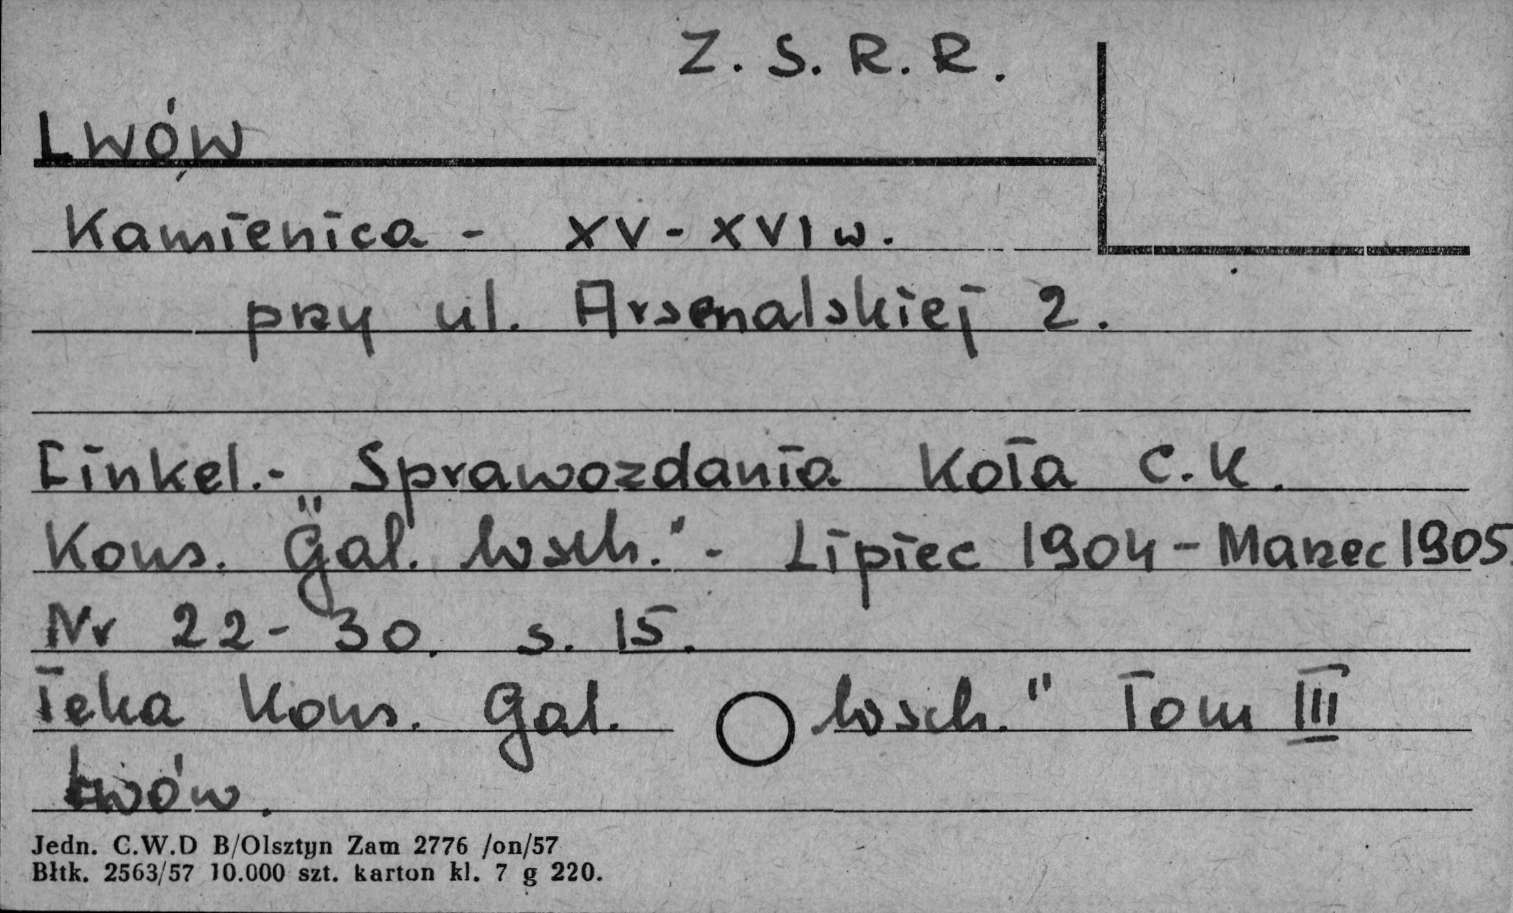 Z. S. R. R.
Lwów
Kamienica - XV - XVI w.
przy ul. Arsenalskiej 2.
Finkel. - Sprawozdania Koła C. K.
Kons. "Gal. wsch." - Lipiec 1904 - Marzec 1905.
Nr 22 - 30. s. 15.
Teka Kons. Gal. wsch." Tom III
Lwów.
Jedn. C.W.D B/Olsztyn Zam 2776 /on/57
Błtk. 2563/57 10.000 szt. karton kl. 7 g 220.